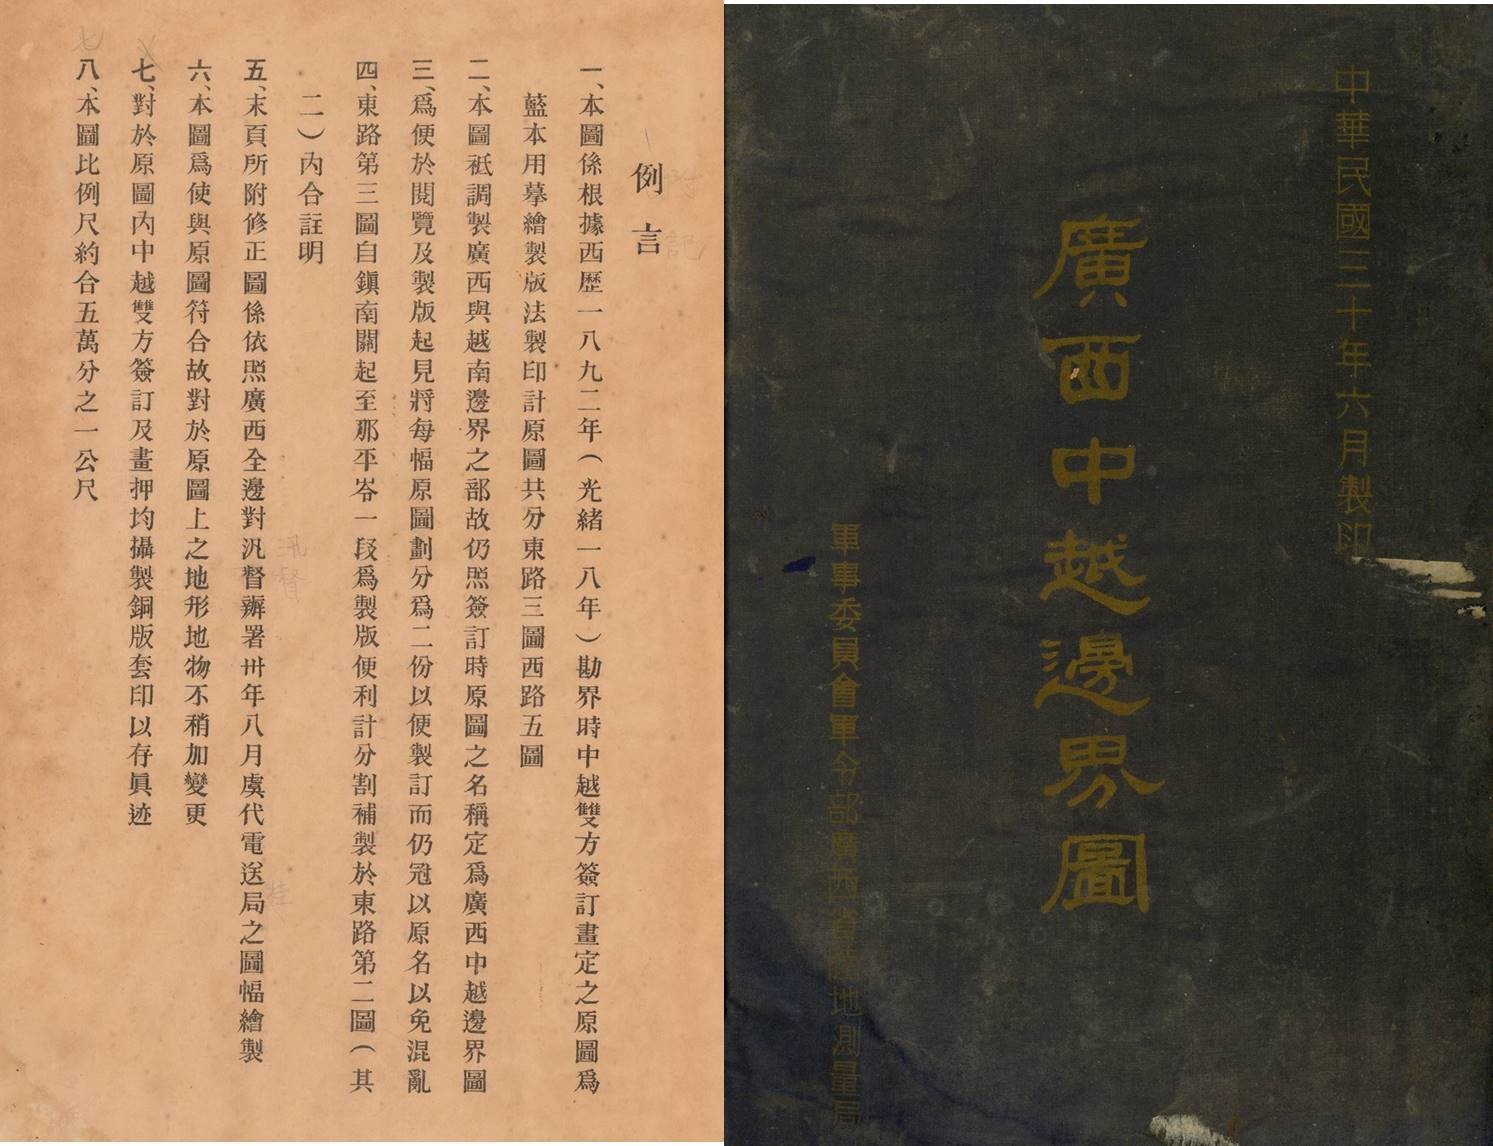 中華民國三十年六月製印
廣西中越邊界圖
軍事委員會軍令部廣西省陸地測量局
例言
一、本圖係根據西歷一八九二年（光緒一八年）勘界時中越雙方簽訂畫定之原圖爲
藍本用摹繪製版法製印計原圖共分東路三圖西路五圖
二、本圖祗調製廣西與越南邊界之部故仍照簽訂時原圖之名稱定爲廣西中越邊界圖
三、爲便於閱覽及製版起見將每幅原圖劃分爲二份以便製訂而仍冠以原名以免混亂
四、東路第三圖自鎭南關起至那平岺一段爲製版便利計分割補製於東路第二圖（其
二）內合註明
五、末頁所附修正圖係依照廣西全邊對汎督辦署卅年八月虞代電送局之圖幅繪製
六、本圖爲使與原圖符合故對於原圖上之地形地物不稍加變更
七、對於原圖內中越雙方簽訂及畫押均攝製銅版套印以存眞迹
八、本圖比例尺約合五萬分之一公尺
汛督